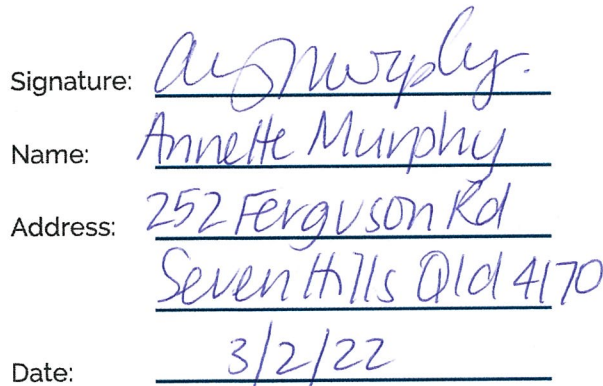 Signature: Murphy.
Name: Annette Murphy
Address: 252 Ferguson Rd
Seven Hills Qld 4170
Date: 3/2/22